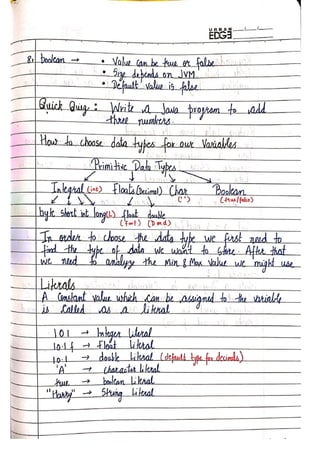 URBAN
EDGE
8. boolean → • Value can be true or false
• Size depends on JVM
• Default value is false
Quick Quiz: Write a Java program to add
three numbers.
How to choose data types for our variables
Primitive Data Types
Integral (int) Floats (Decimal) Char Boolean
(' ') (true/false)
byte short int long (L) float double
(F or f) (D or d)
In order to choose the data type we first need to
find the type of data we want to store. After that
we need to analyze the Min & Max value we might use.
Literals
A constant value which can be assigned to the variable
is called as a literal
101 → Integer literal
10.1f → float literal
10.1 → double literal (default type for decimals)
'A' → character literal
true → boolean literal
"Harry" → String literal